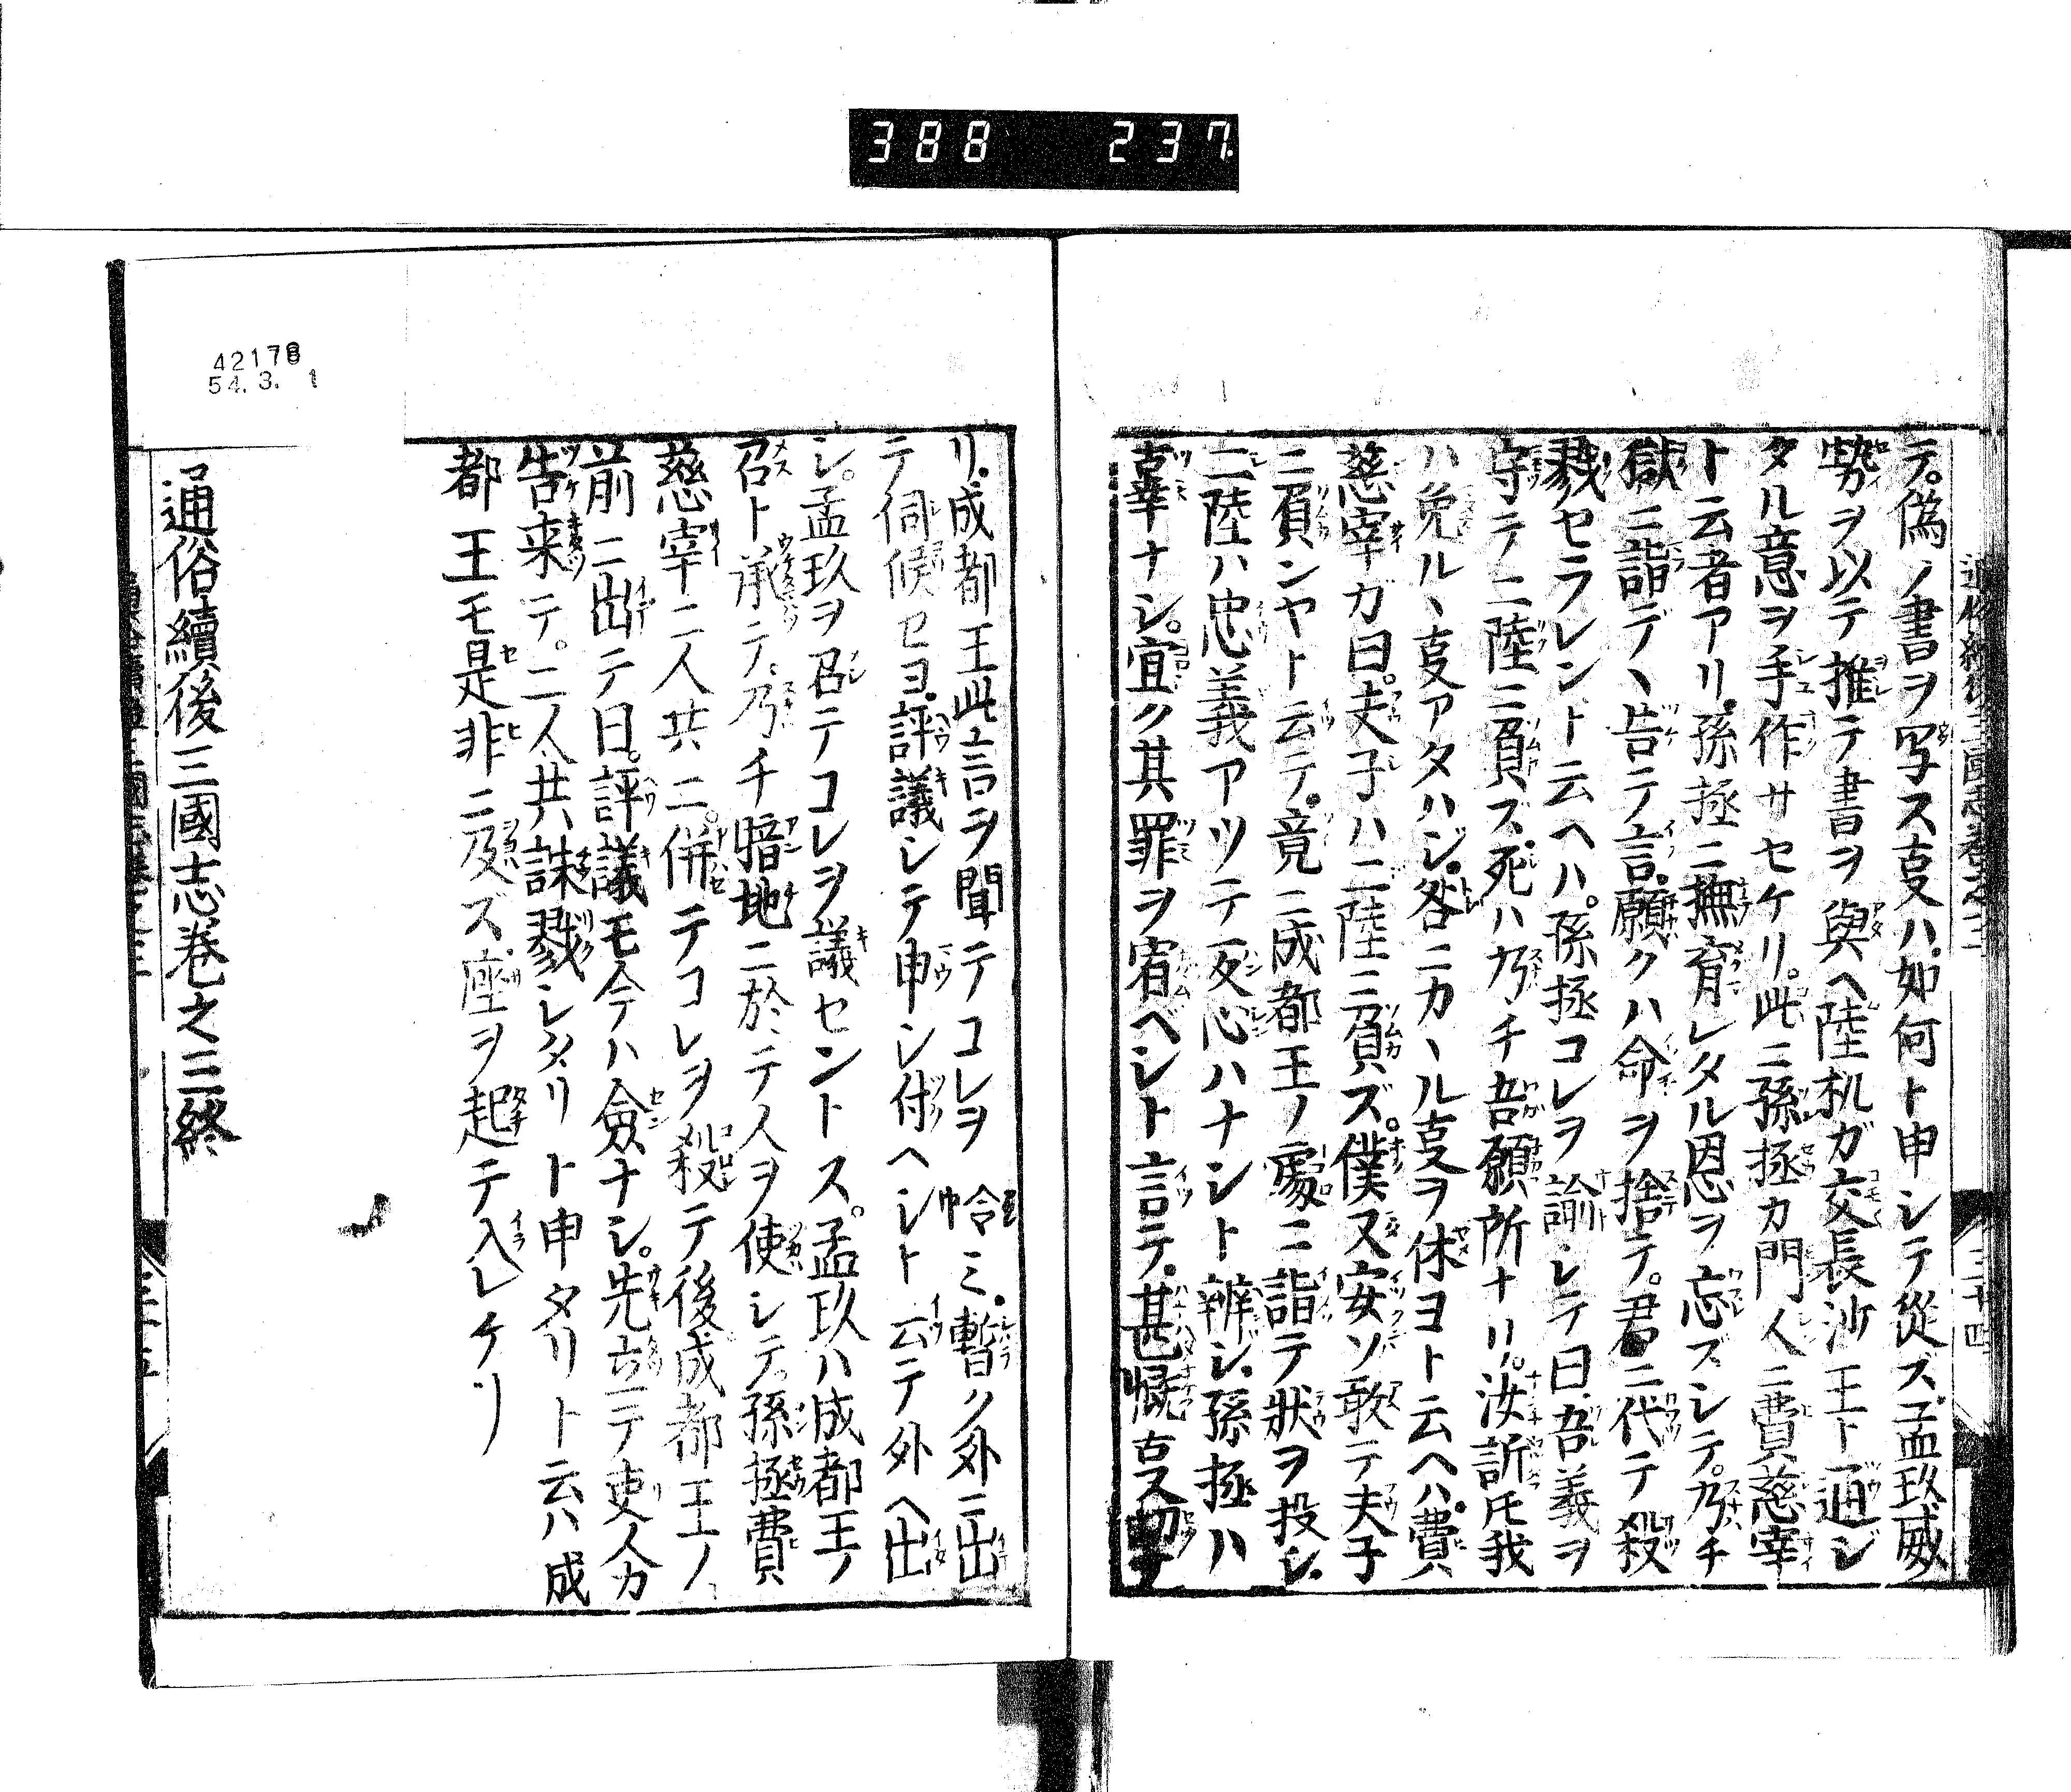 388 237
テ。偽ノ書ヲ写ス㕝ハ。如何ト申シテ從ズ。孟玖威
勢ヲ以テ推テ書ヲ與ヘ陸机ガ交長沙王ト通ジ
タル意ヲ手作サセケリ。此ニ孫拯カ門人ニ費慈宰
ト云者アリ。孫拯ニ撫育レタル恩ヲ忘ズシテ。乃チ
獄ニ詣デヽ告テ言。願クハ命ヲ捨テ。君ニ代テ殺
戮セラレント云ヘハ。孫拯コレヲ諭レテ曰。吾義ヲ
守テ二陸ニ負ズ。死ハ乃チ吾願所ナリ。汝訴氏我
ハ免ルヽ㕝アタハジ。咎ニカヽル㕝ヲ休ヨト云ヘハ。費
慈宰ガ曰。夫子ハ二陸ニ負ズ。僕又安ソ敢テ夫子
ニ負ンヤト云テ。竟ニ成都王ノ處ニ詣テ狀ヲ投シ。
二陸ハ忠義アツテ反心ハナシト辨シ。孫拯ハ
辜ナシ。宜ク其罪ヲ宥ベシト言テ。甚慨㕝切ナ
リ。成都王此言ヲ聞テコレヲ怜ミ。暫ク外ニ出
テ伺候セヨ。評議シテ申シ付ヘシト云テ外ヘ出
シ。孟玖ヲ召テコレヲ議セントス。孟玖ハ成都王ノ
召ト承テ。乃チ暗地ニ於テ人ヲ使シテ。孫拯費
慈宰二人共ニ。併テコレヲ殺テ後成都王ノ
前ニ出テ曰。評議モ今ハ僉ナシ。先立テ吏人カ
告来テ。二人共誅戮シタリト申タリト云ハ成
都王モ是非ニ及ズ座ヲ起テ入レケリ
通俗續後三國志巻之三終
42178
54.3.1